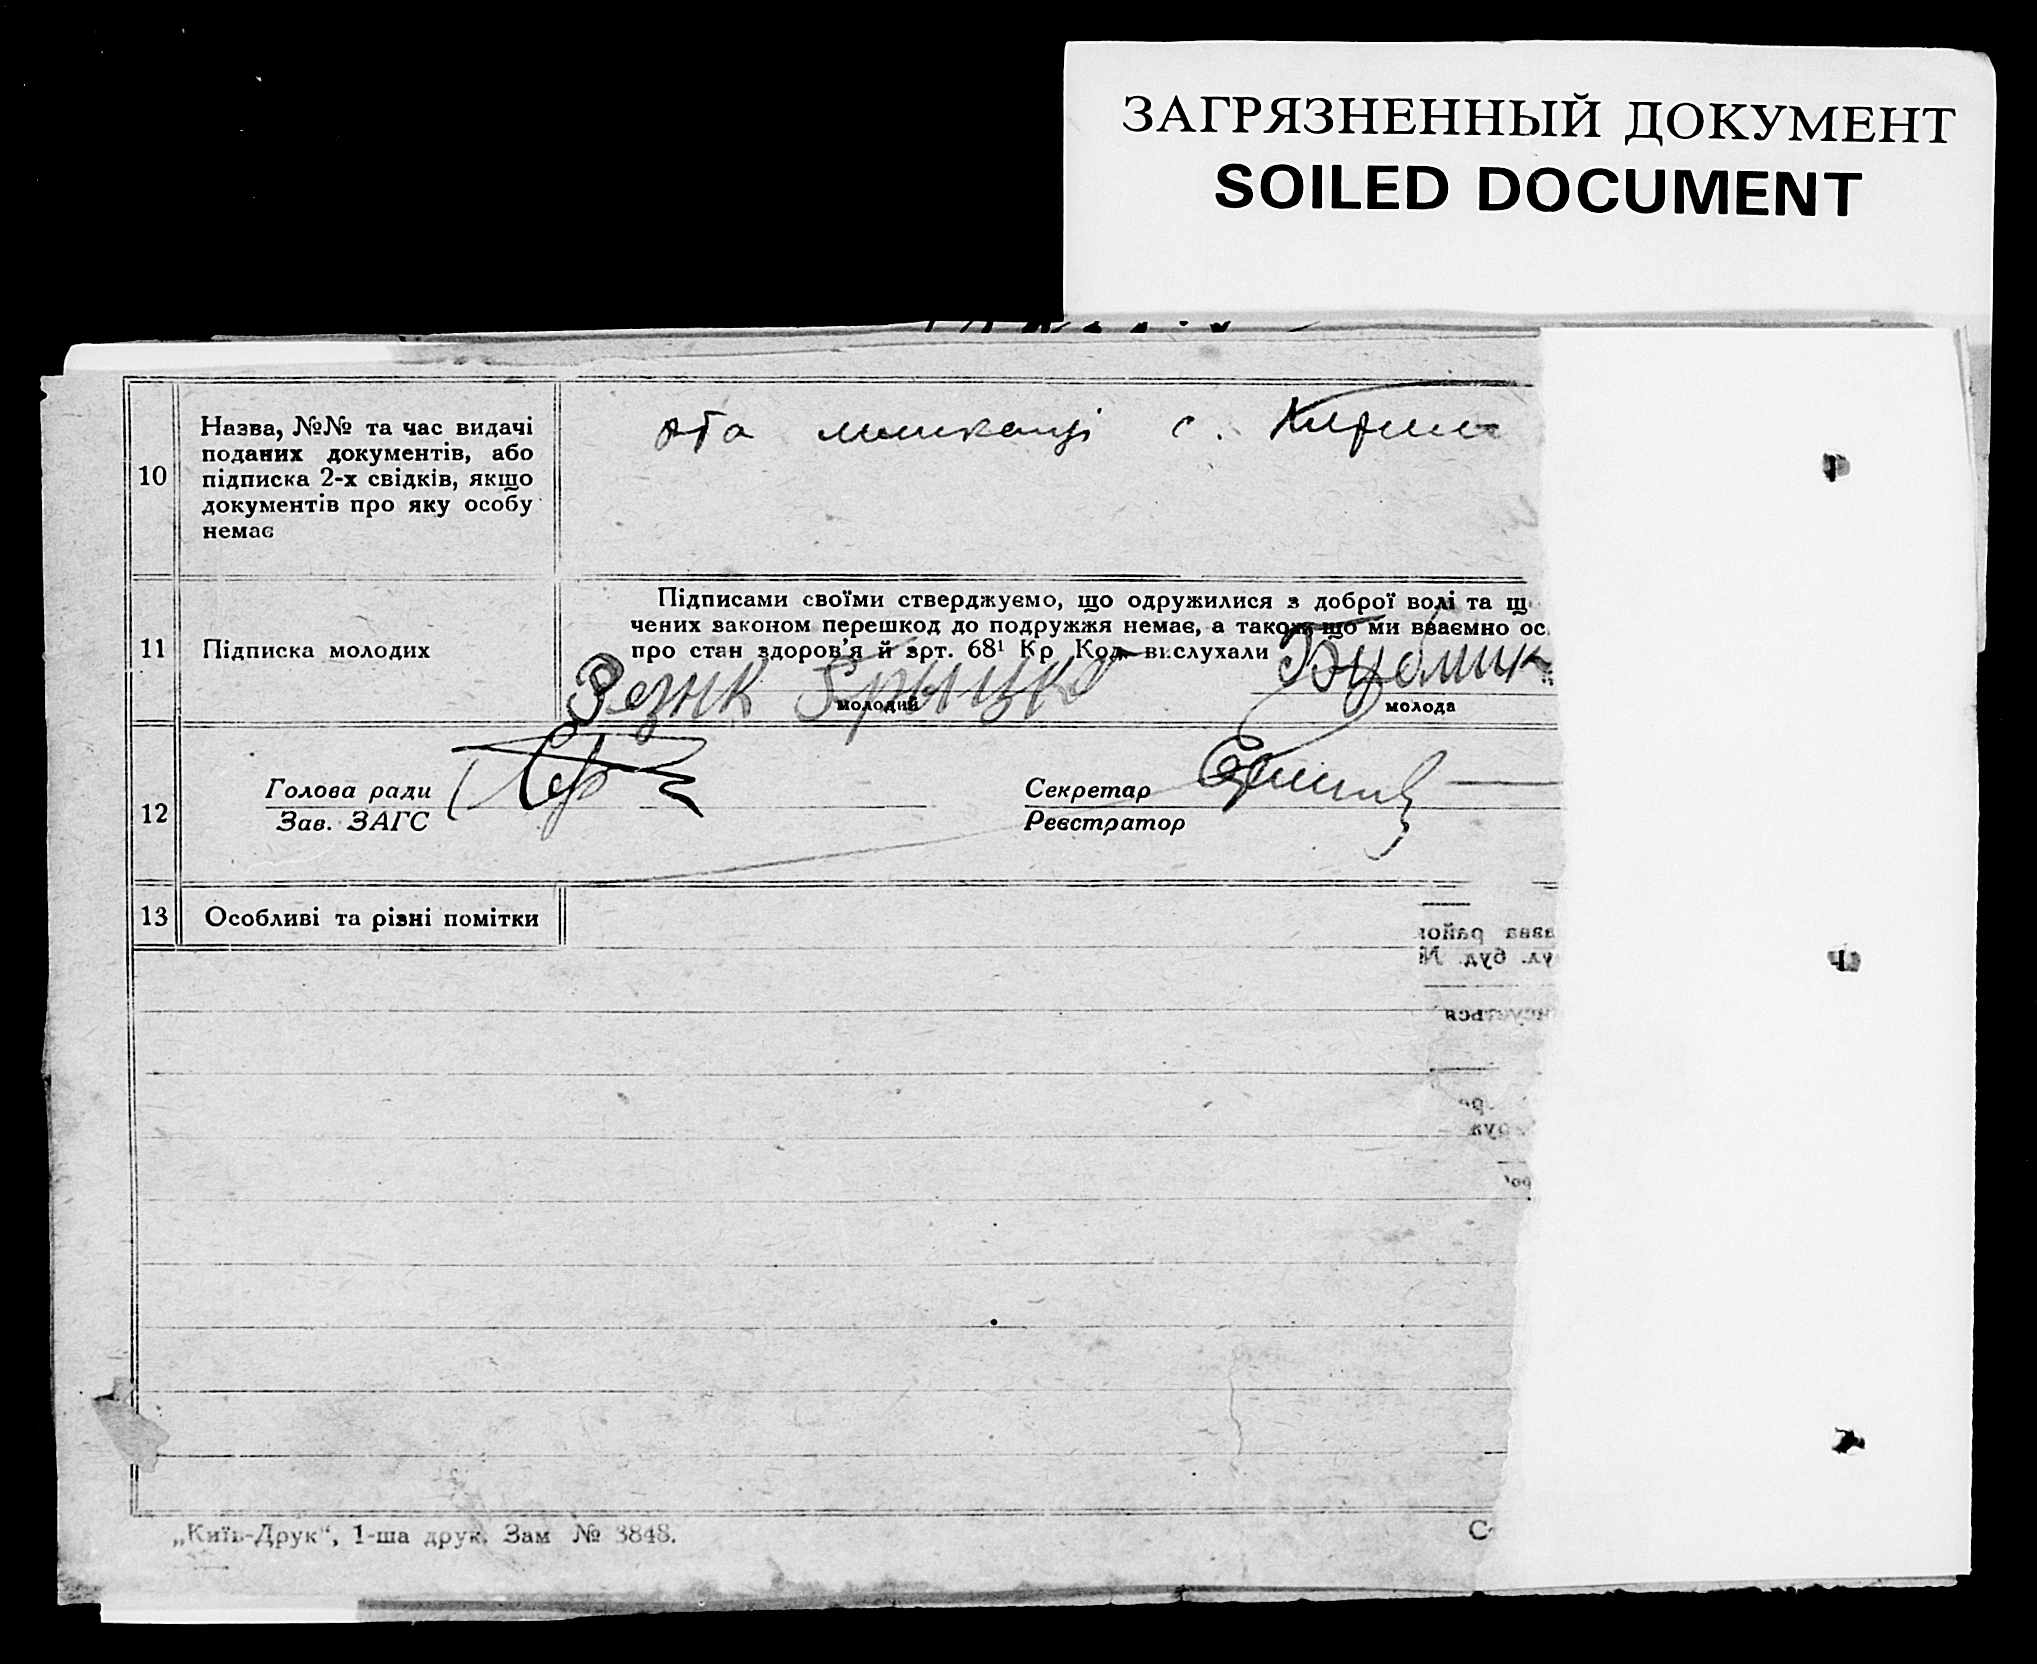 ЗАГРЯЗНЕННЫЙ ДОКУМЕНТ
SOILED DOCUMENT
10
Назва, №№ та час видачі
поданих документів, або
підписка 2-х свідків, якщо
документів про яку особу
немає
оба мешканці с.
11
Підписка молодих
Підписами своїми стверджуємо, що одружилися з доброї волі та щ
чених законом перешкод до подружжя немає, а також що ми взаємно ос
про стан здоров'я й зрт. 68¹ Кр Код. вислухали
Грыцко
молодий
молода
12
Голова ради
Зав. ЗАГС
Секретар
Реєстратор
13
Особливі та різні помітки
„Київ-Друк“, 1-ша друк. Зам № 3848.